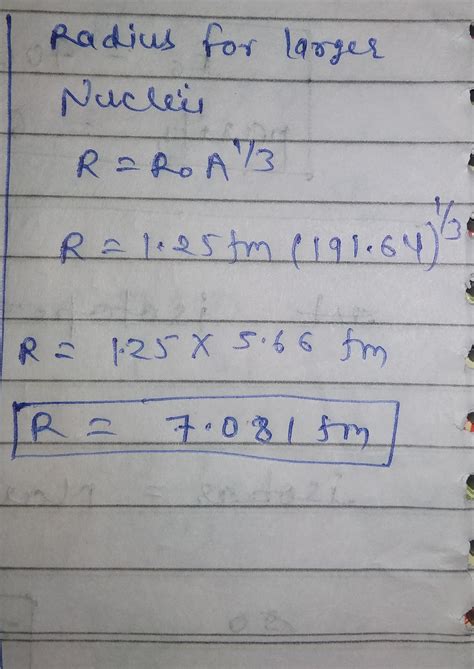 Radius for larger
Nucleii
R = R₀ A^1/3
R = 1.25 fm (191.64)^1/3
R = 1.25 X 5.66 fm
R = 7.081 fm